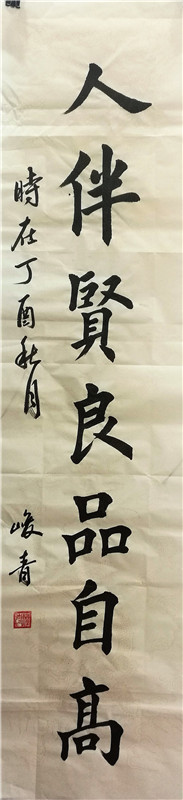 人伴賢良品自高
時在丁酉秋月
峻青